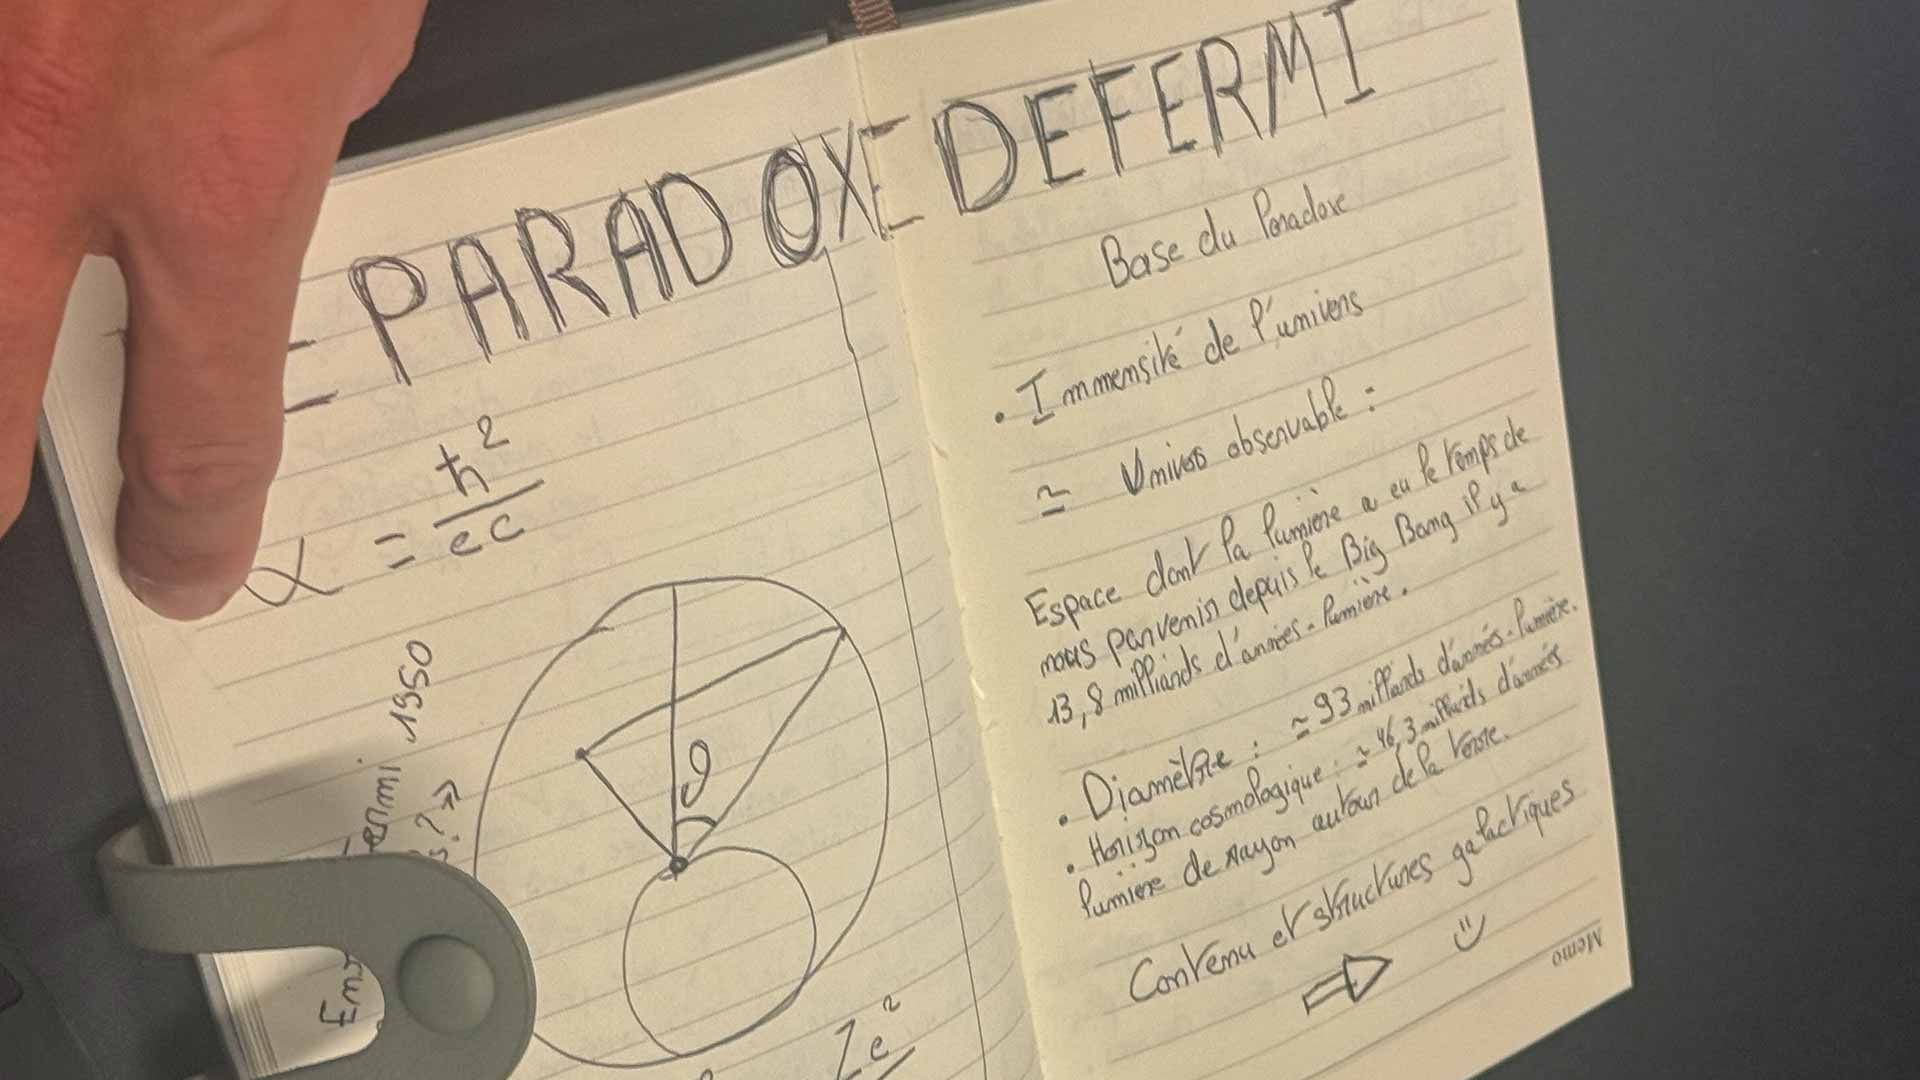 E PARADOXE DE FERMI
α = ħ²
ec
Fermi 1950
s?»
θ
Ze²
Base du Paradoxe
• Immensité de l'univers
≃ Univers observable :
Espace dont la lumière a eu le temps de
nous parvenir depuis le Big Bang il y a
13,8 milliards d'années-lumière.
• Diamètre : ≃ 93 milliards d'années-lumière.
• Horizon cosmologique : ≃ 46,3 milliards d'années
lumière de rayon autour de la Terre.
Contenu et structures galactiques
Memo